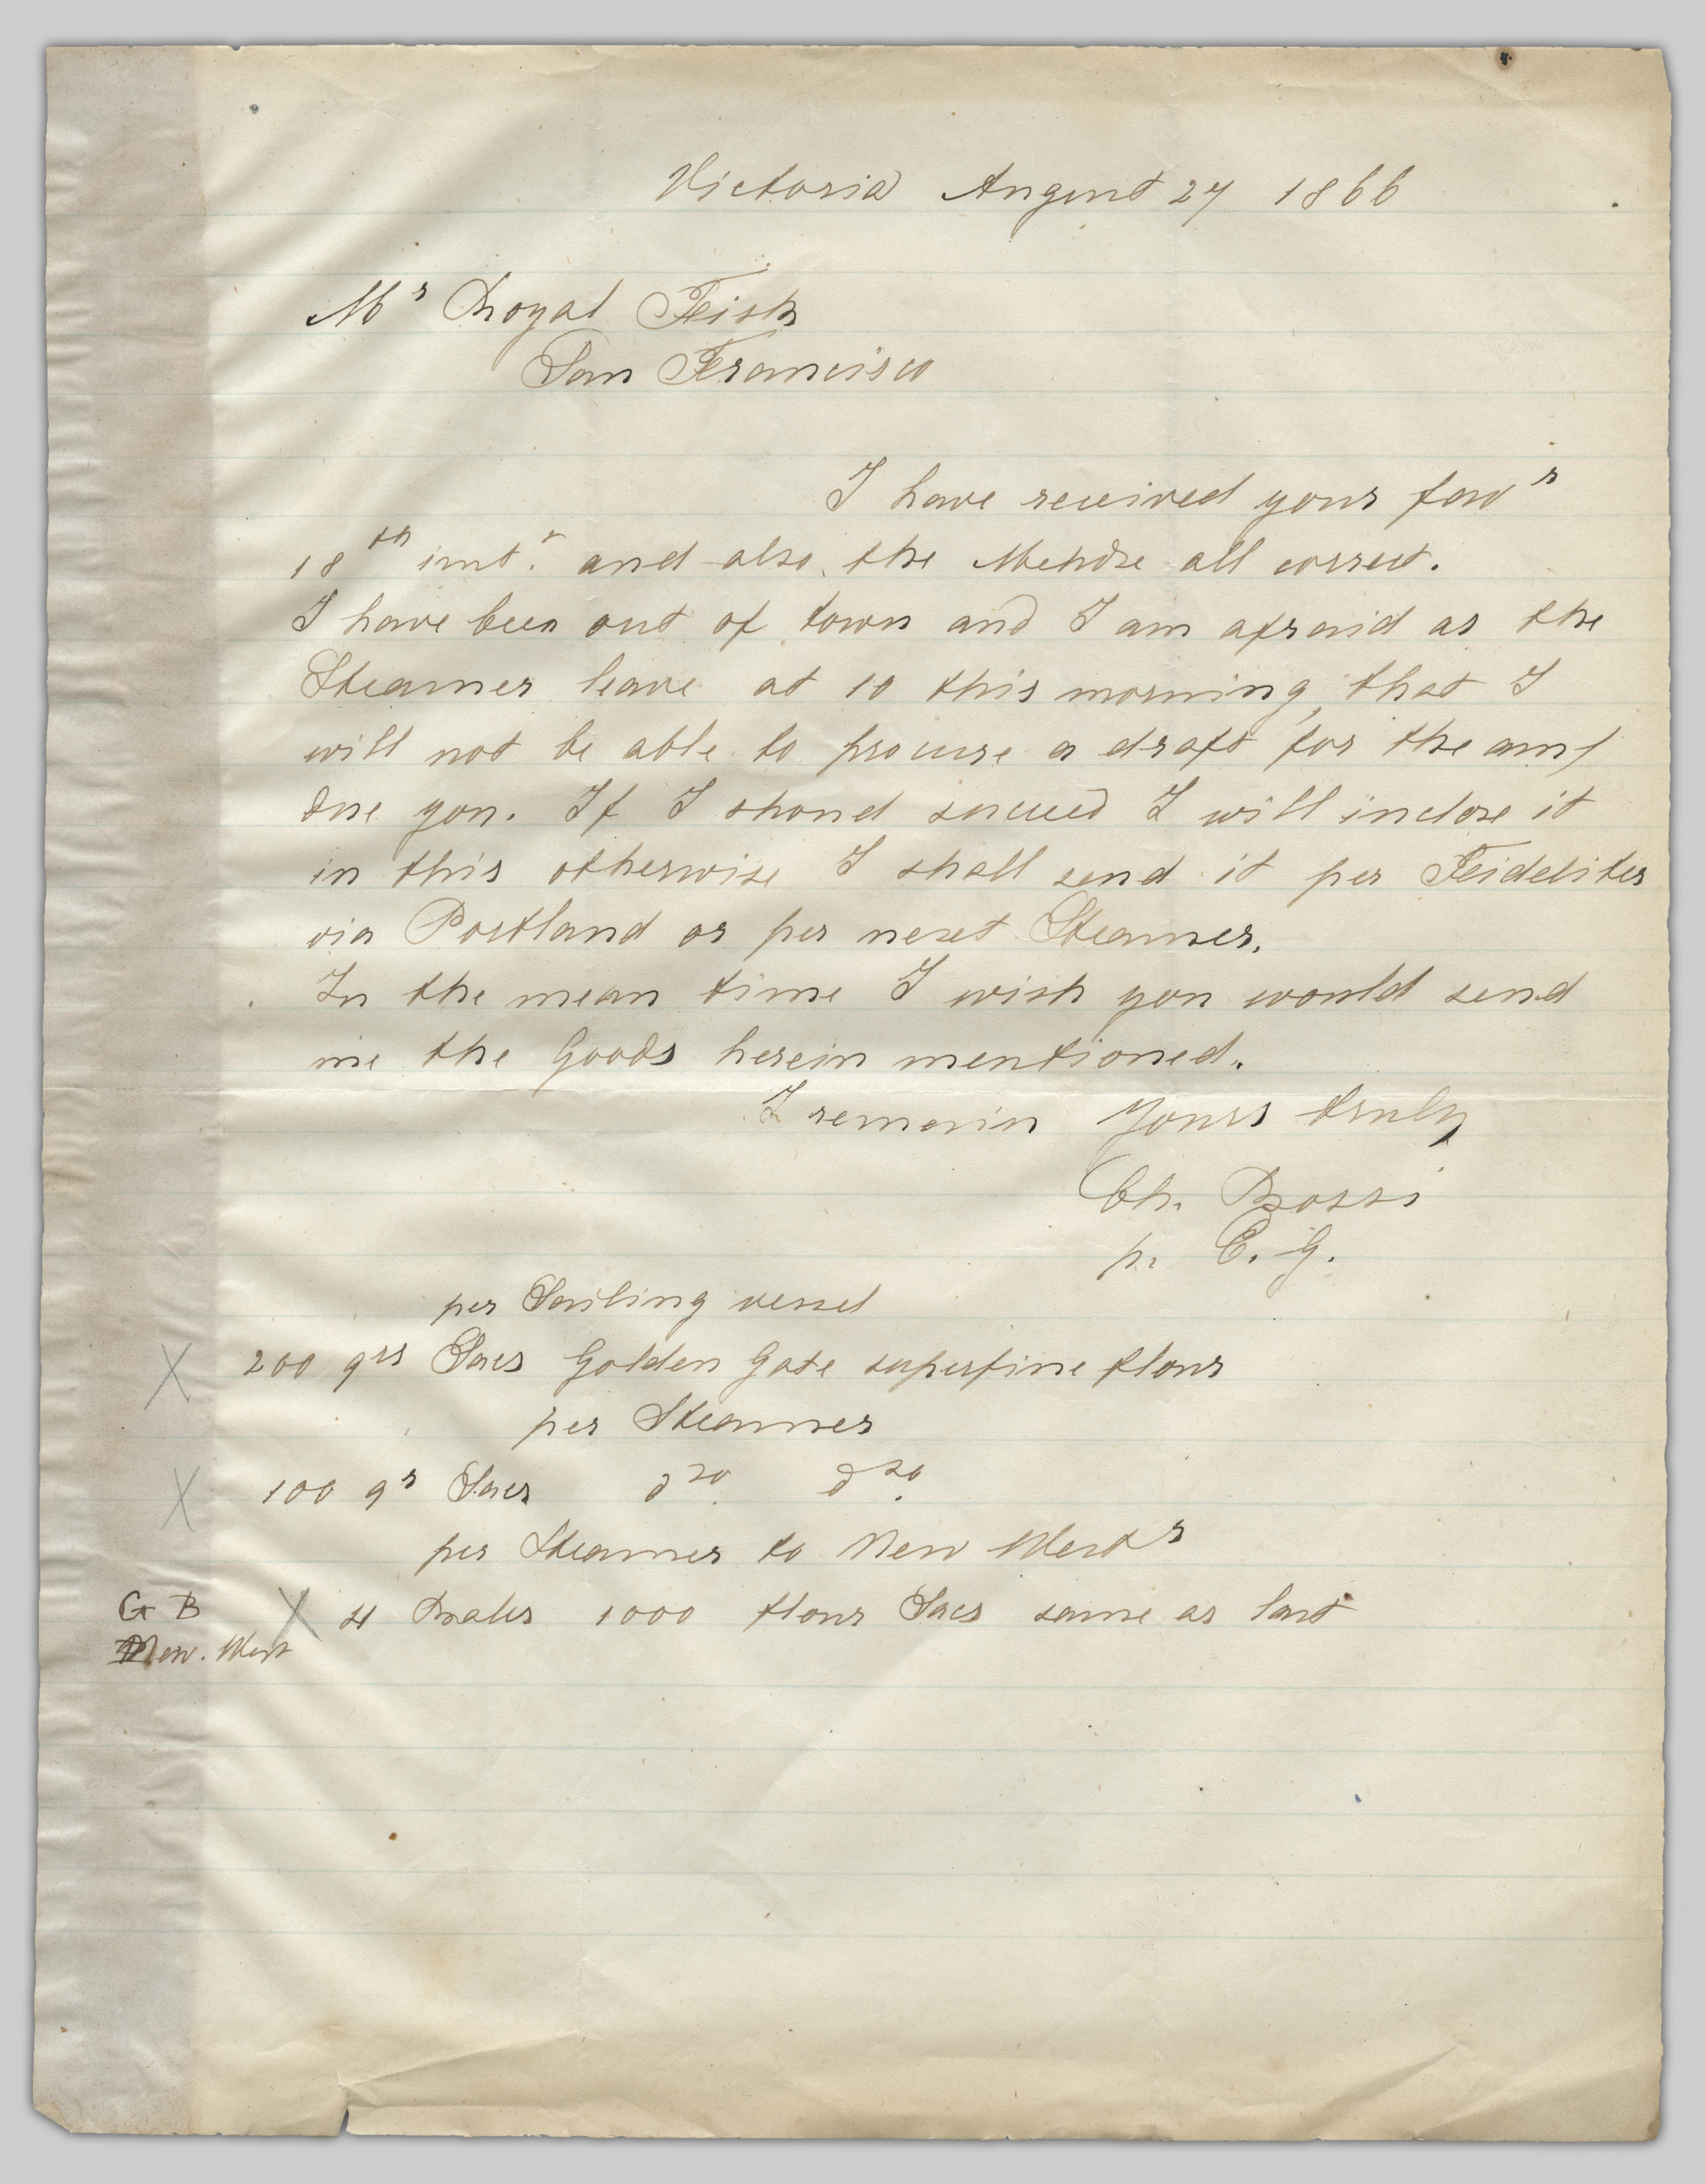 Victoria August 27 1866
Mr Royal Feisk
San Francisco
I have received your favr
18th inst. and also the Mchdse all correct.
I have been out of town and I am afraid as the
Steamer leave at 10 this morning, that I
will not be able to procure a draft for the amt
due you. If I shoud succeed I will inclose it
in this otherwise I shall send it per Feideliter
via Portland or per next Steamer.
In the mean time I wish you would send
me the Goods herein mentioned.
I remain Yours truly
Ch. Bossi
p. C. G.
per Sailing vessel
X 200 qrs Sacs Golden Gate superfine flour
per Steamer
X 100 qr Sacs do. do.
per Steamer to New Westr
G B X 4 Bales 1000 flour Sacs same as last
New. West